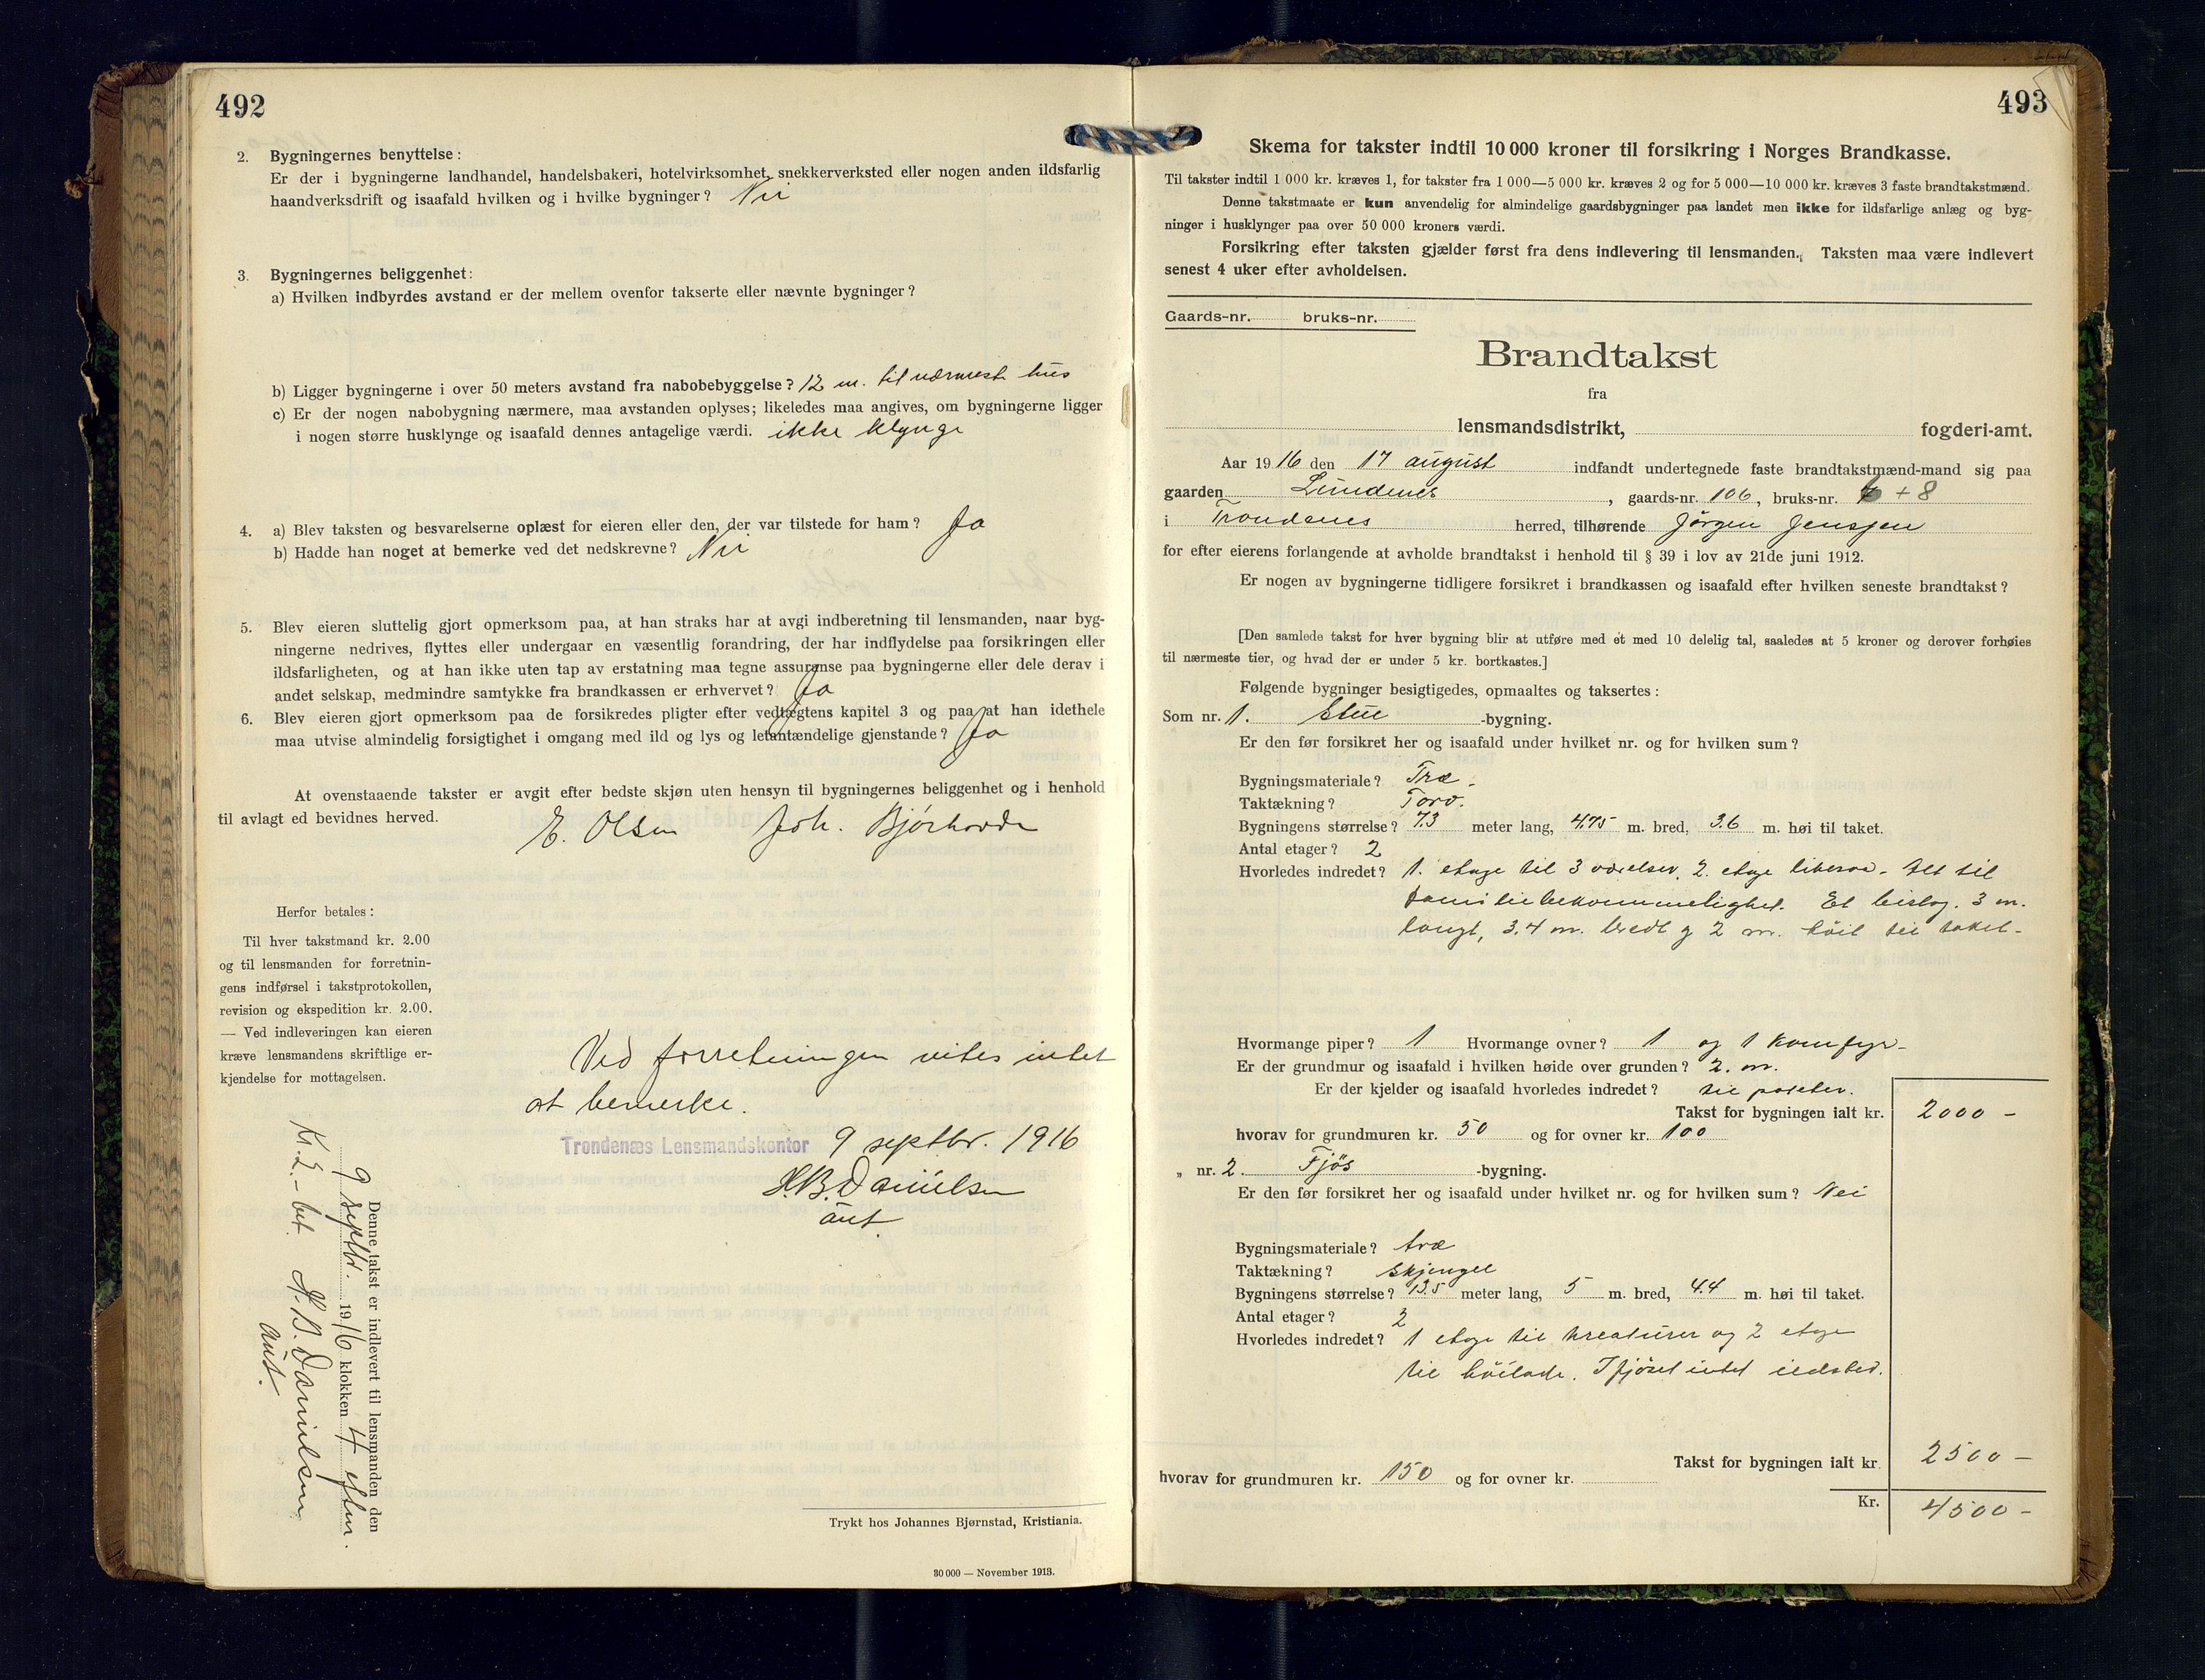 492
2. Bygningernes benyttelse:
Er der i bygningerne landhandel, handelsbakeri, hotelvirksomhet, snekkerverksted eller nogen anden ildsfarlig
haandverksdrift og isaafald hvilken og i hvilke bygninger? Nei
3. Bygningernes beliggenhet:
a) Hvilken indbyrdes avstand er der mellem ovenfor takserte eller nævnte bygninger?
b) Ligger bygningerne i over 50 meters avstand fra nabobebyggelse? 12 m. til nærmeste hus
c) Er der nogen nabobygning nærmere, maa avstanden oplyses; likeledes maa angives, om bygningerne ligger
i nogen større husklynge og isaafald dennes antagelige værdi. ikke klynge
4. a) Blev taksten og besvarelserne oplæst for eieren eller den, der var tilstede for ham? Ja
b) Hadde han noget at bemerke ved det nedskrevne? Nei
5. Blev eieren sluttelig gjort opmerksom paa, at han straks har at avgi indberetning til lensmanden, naar byg-
ningerne nedrives, flyttes eller undergaar en væsentlig forandring, der har indflydelse paa forsikringen eller
ildsfarligheten, og at han ikke uten tap av erstatning maa tegne assuranse paa bygningerne eller dele derav i
andet selskap, medmindre samtykke fra brandkassen er erhvervet? Ja
6. Blev eieren gjort opmerksom paa de forsikredes pligter efter vedtægtens kapitel 3 og paa at han idethele
maa utvise almindelig forsigtighet i omgang med ild og lys og letantændelige gjenstande? Ja
At ovenstaaende takster er avgit efter bedste skjøn uten hensyn til bygningernes beliggenhet og i henhold
til avlagt ed bevidnes herved.
E. Olsen Joh. Bjørhovde
Herfor betales:
Til hver takstmand kr. 2.00
og til lensmanden for forretnin-
gens indførsel i takstprotokollen,
revision og ekspedition kr. 2.00.
— Ved indleveringen kan eieren
kræve lensmandens skriftlige er-
kjendelse for mottagelsen.
Ved forretningen vites intet
at bemerke.
Trondenæs Lensmandskontor 9 septbr. 1916
H.B. Danielsen
aut.
Denne takst er indlevert til lensmanden den
9 septbr. 1916 klokken 4 efterm.
Kr. 2.- bet. H. B. Danielsen
aut.
Trykt hos Johannes Bjørnstad, Kristiania.
30 000 — November 1913.
493
Skema for takster indtil 10 000 kroner til forsikring i Norges Brandkasse.
Til takster indtil 1 000 kr. kræves 1, for takster fra 1 000—5 000 kr. kræves 2 og for 5 000—10 000 kr. kræves 3 faste brandtakstmænd.
Denne takstmaate er kun anvendelig for almindelige gaardsbygninger paa landet men ikke for ildsfarlige anlæg og byg-
ninger i husklynger paa over 50 000 kroners værdi.
Forsikring efter taksten gjælder først fra dens indlevering til lensmanden. Taksten maa være indlevert
senest 4 uker efter avholdelsen.
Gaards-nr. bruks-nr.
Brandtakst
fra
lensmandsdistrikt, fogderi-amt.
Aar 1916 den 17 august indfandt undertegnede faste brandtakstmænd-mand sig paa
gaarden Lundenes, gaards-nr. 106, bruks-nr. + 8
i Trondenes herred, tilhørende Jörgen Jenssen
for efter eierens forlangende at avholde brandtakst i henhold til § 39 i lov av 21de juni 1912.
Er nogen av bygningerne tidligere forsikret i brandkassen og isaafald efter hvilken seneste brandtakst?
[Den samlede takst for hver bygning blir at utføre med et med 10 delelig tal, saaledes at 5 kroner og derover forhøies
til nærmeste tier, og hvad der er under 5 kr. bortkastes.]
Følgende bygninger besigtigedes, opmaaltes og taksertes:
Som nr. 1. Stue -bygning.
Er den før forsikret her og isaafald under hvilket nr. og for hvilken sum?
Bygningsmateriale? Træ.
Taktækning? Torv.
Bygningens størrelse? 7.3 meter lang, 4.75 m. bred, 3.6 m. høi til taket.
Antal etager? 2
Hvorledes indredet? 1. etage til 3 værelser, 2. etage liberaa. Alt til
familiebekommelighet. Et bislag. 3 m.
langt, 3.4 m. bredt og 2 m. höit til taket.
Hvormange piper? 1 Hvormange ovner? 1 og 1 komfyr.
Er der grundmur og isaafald i hvilken høide over grunden? 2. m.
Er der kjelder og isaafald hvorledes indredet? til poteter.
Takst for bygningen ialt kr. 2000 -
hvorav for grundmuren kr. 50 og for ovner kr. 100
„ nr. 2. Fjös -bygning.
Er den før forsikret her og isaafald under hvilket nr. og for hvilken sum? Nei
Bygningsmateriale? træ
Taktækning? Skjengel
Bygningens størrelse? 13.5 meter lang, 5 m. bred, 4.4 m. høi til taket.
Antal etager? 2
Hvorledes indredet? 1 etage til kreaturer og 2 etage
til höilade. I fjöset intet ildsted.
Takst for bygningen ialt kr. 2500 —
hvorav for grundmuren kr. 150 og for ovner kr.
Kr. 4500 -